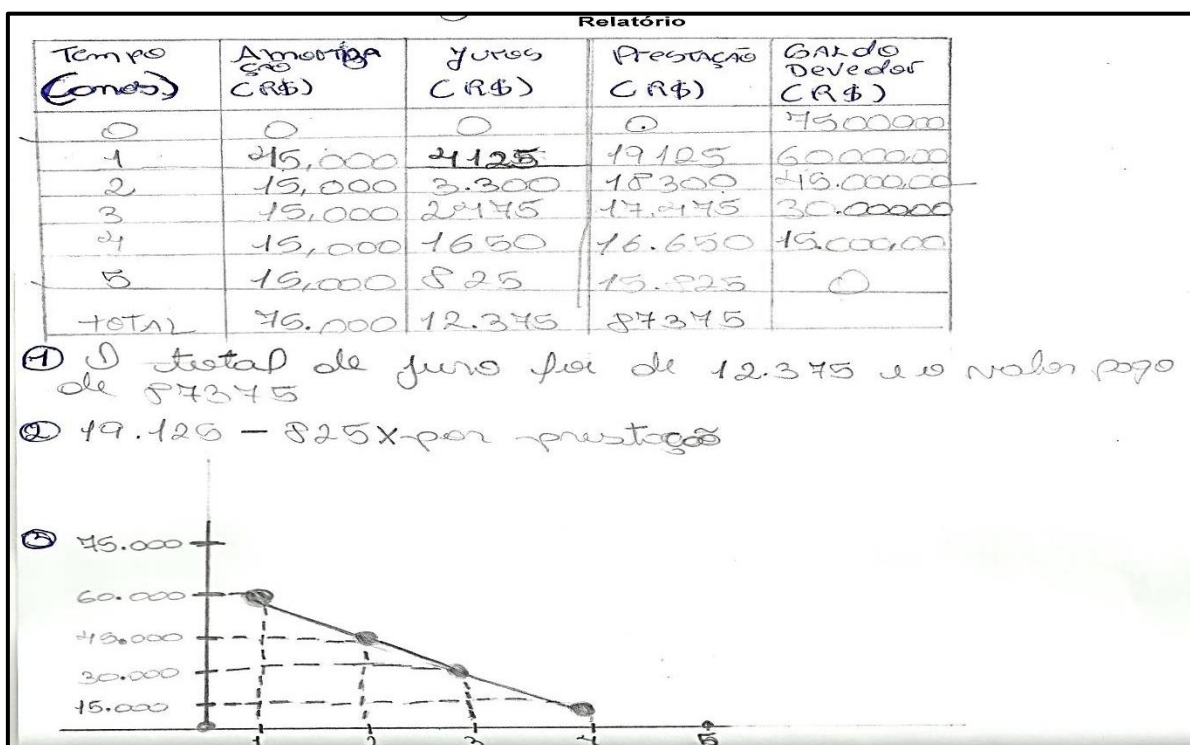 Relatório
Tempo (anos) Amortiza ção (R$) Juros (R$) Prestação (R$) Saldo Devedor (R$)
0 0 0 0. 75000,00
1 15,000 4125 19125 60000,00
2 15,000 3.300 18300 45.000,00
3 15,000 2475 17.475 30.00000
4 15,000 1650 16.650 15.000,00
5 15,000 825 15.825 0
TOTAL 75.000 12.375 87375
① O total de juro foi de 12.375 e o valor pago
de 87375
② 19.125 - 825X por prestação
③ 75.000
60.000
45.000
30.000
15.000
1 2 3 4 5